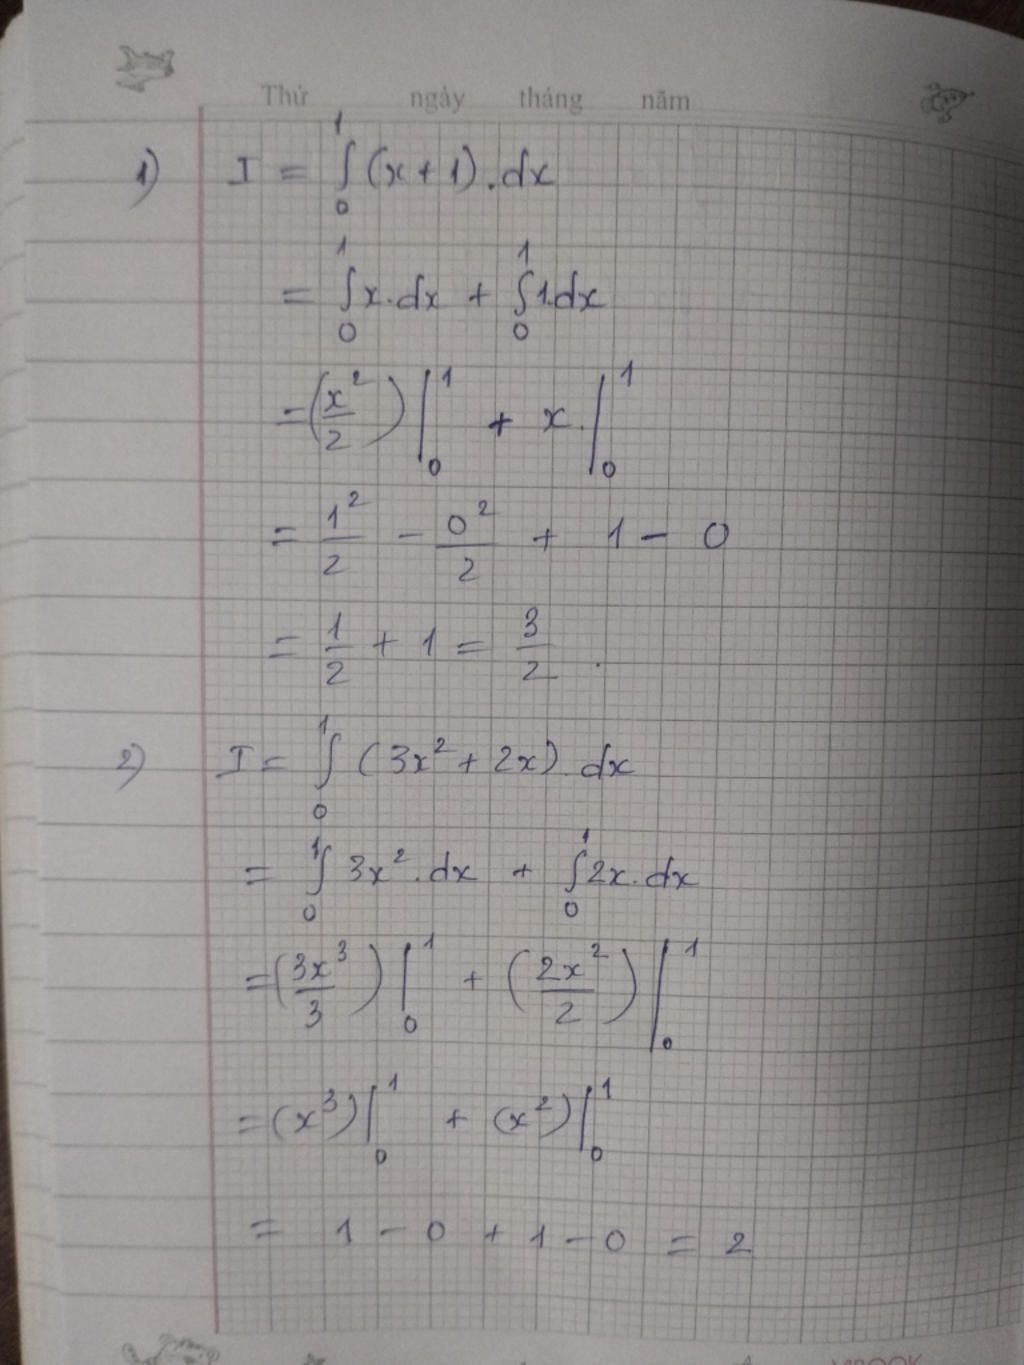 Thứ ngày tháng năm
1) I = ∫₀¹ (x + 1).dx
= ∫₀¹ x.dx + ∫₀¹ 1.dx
= (x²/2) |₀¹ + x.|₀¹
= 1²/2 - 0²/2 + 1 - 0
= 1/2 + 1 = 3/2.
2) I = ∫₀¹ (3x² + 2x).dx
= ∫₀¹ 3x².dx + ∫₀¹ 2x.dx
= (3x³/3) |₀¹ + (2x²/2) |₀¹
= (x³) |₀¹ + (x²) |₀¹
= 1 - 0 + 1 - 0 = 2